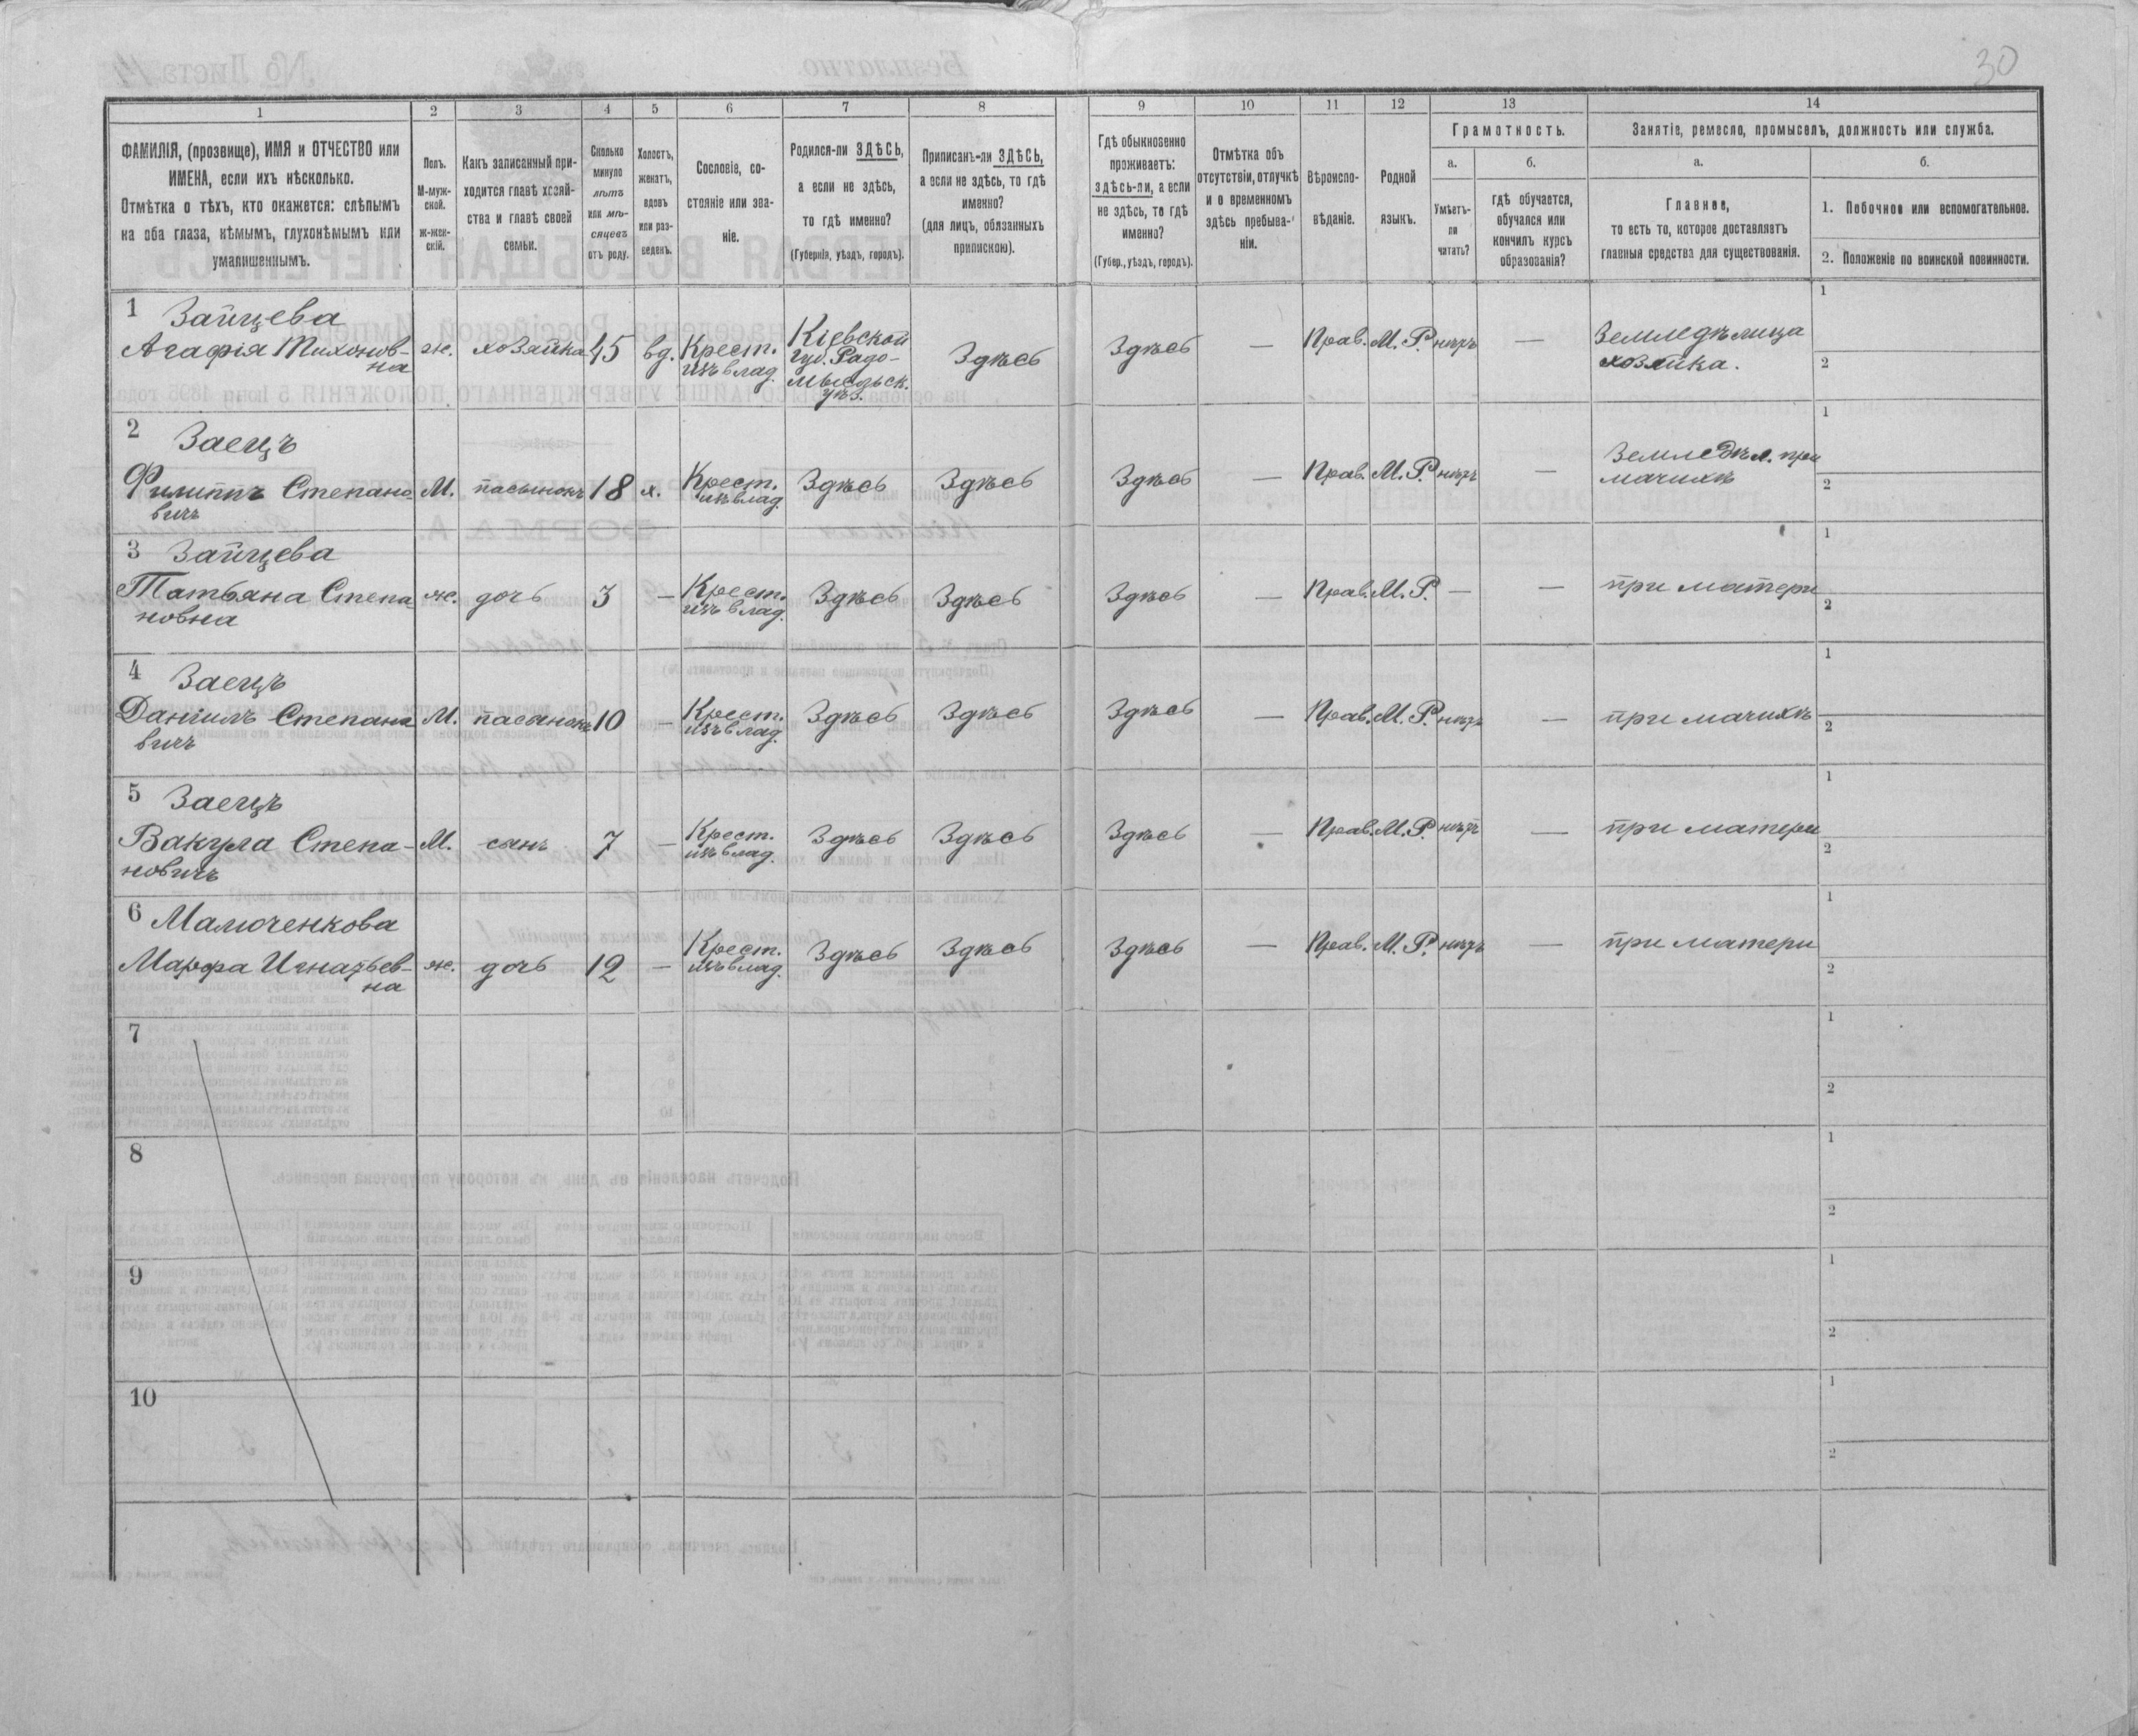 30
1 2 3 4 5 6 7 8 9 10 11 12 13 14
ФАМИЛІЯ, (прозвище), ИМЯ и ОТЧЕСТВО или
ИМЕНА, если ихъ нѣсколько.
Отмѣтка о тѣхъ, кто окажется: слѣпымъ
на оба глаза, нѣмымъ, глухонѣмымъ или
умалишеннымъ.
Полъ.
М-муж-
ской.
Ж-жен-
скій.
Какъ записанный при-
ходится главѣ хозяй-
ства и главѣ своей
семьи.
Сколько
минуло
лѣтъ
или мѣ-
сяцевъ
отъ роду.
Холостъ,
женатъ,
вдовъ
или раз-
веденъ.
Сословіе, со-
стояніе или зва-
ніе.
Родился-ли ЗДѢСЬ,
а если не здѣсь,
то гдѣ именно?
(Губернія, уѣздъ, городъ).
Приписанъ-ли ЗДѢСЬ,
а если не здѣсь, то гдѣ
именно?
(для лицъ, обязанныхъ
припискою).
Гдѣ обыкновенно
проживаетъ:
здѣсь-ли, а если
не здѣсь, то гдѣ
именно?
(Губер., уѣздъ, городъ).
Отмѣтка объ
отсутствіи, отлучкѣ
и о временномъ
здѣсь пребыва-
ніи.
Вѣроиспо-
вѣданіе.
Родной
языкъ.
Грамотность.
а.
Умѣетъ-
ли
читать?
б.
гдѣ обучается,
обучался или
кончилъ курсъ
образованія?
Занятіе, ремесло, промыселъ, должность или служба.
а.
Главное,
то есть то, которое доставляетъ
главныя средства для существованія.
б.
1. Побочное или вспомогательное.
2. Положеніе по воинской повинности.
1 Зайцева
Агафія Тихонов-
на
ж. хозяйка 45 вд.
Крест.
изъ влад.
Кіевской
губ. Радо-
мысльск.
уѣз.
Здѣсь Здѣсь — Прав. М. Р. нѣтъ —
Земледѣлица
хозяйка.
1
2
2 Заецъ
Филиппъ Степано
вичъ
М. пасынокъ 18 х.
Крест.
изъ влад.
Здѣсь Здѣсь Здѣсь — Прав. М. Р. нѣтъ —
Земледѣл. при
мачихѣ
1
2
3 Зайцева
Татьяна Степа
новна
ж. дочь 3 —
Крест.
изъ влад.
Здѣсь Здѣсь Здѣсь — Прав. М. Р. — — при матери
1
2
4 Заецъ
Даніилъ Степано
вичъ
М. пасынокъ 10 —
Крест.
изъ влад.
Здѣсь Здѣсь Здѣсь — Прав. М. Р. нѣтъ — при мачихѣ
1
2
5 Заецъ
Вакула Степа-
новичъ
М. сынъ 7 —
Крест.
изъ влад.
Здѣсь Здѣсь Здѣсь — Прав. М. Р. нѣтъ — при матери
1
2
6 Малюченкова
Марфа Игнатьев-
на
ж. дочь 12 —
Крест.
изъ влад.
Здѣсь Здѣсь Здѣсь — Прав. М. Р. нѣтъ — при матери
1
2
7
1
2
8
1
2
9
1
2
10
1
2